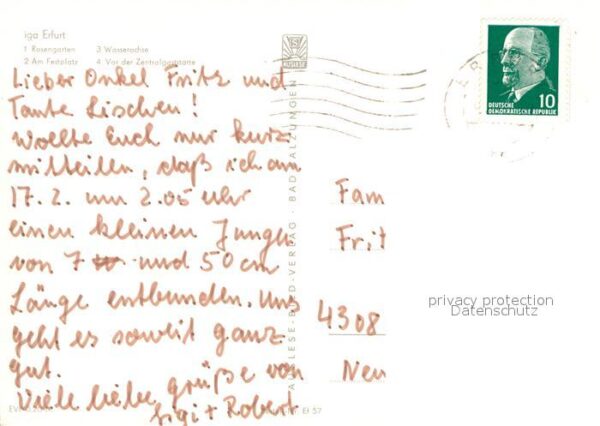 iga Erfurt
1 Rosengarten 3 Wasserachse
2 Am Festplatz 4 Vor der Zentralgaststätte
Lieber Onkel Fritz und
Tante Lischen!
Wollte Euch nur kurz
mitteilen, daß ich am
17. 2. um 2.05 Uhr
einen kleinen Jungen
von 7 und 50 cm
Länge entbunden. Uns
geht es soweit ganz
gut.
Viele liebe grüße von
Sigi + Robert
AUSLESE-BILD-VERLAG · BAD SALZUNGEN
DEUTSCHE
DEMOKRATISCHE REPUBLIK
10
Fam
Frit
4308
Neu
privacy protection
Datenschutz